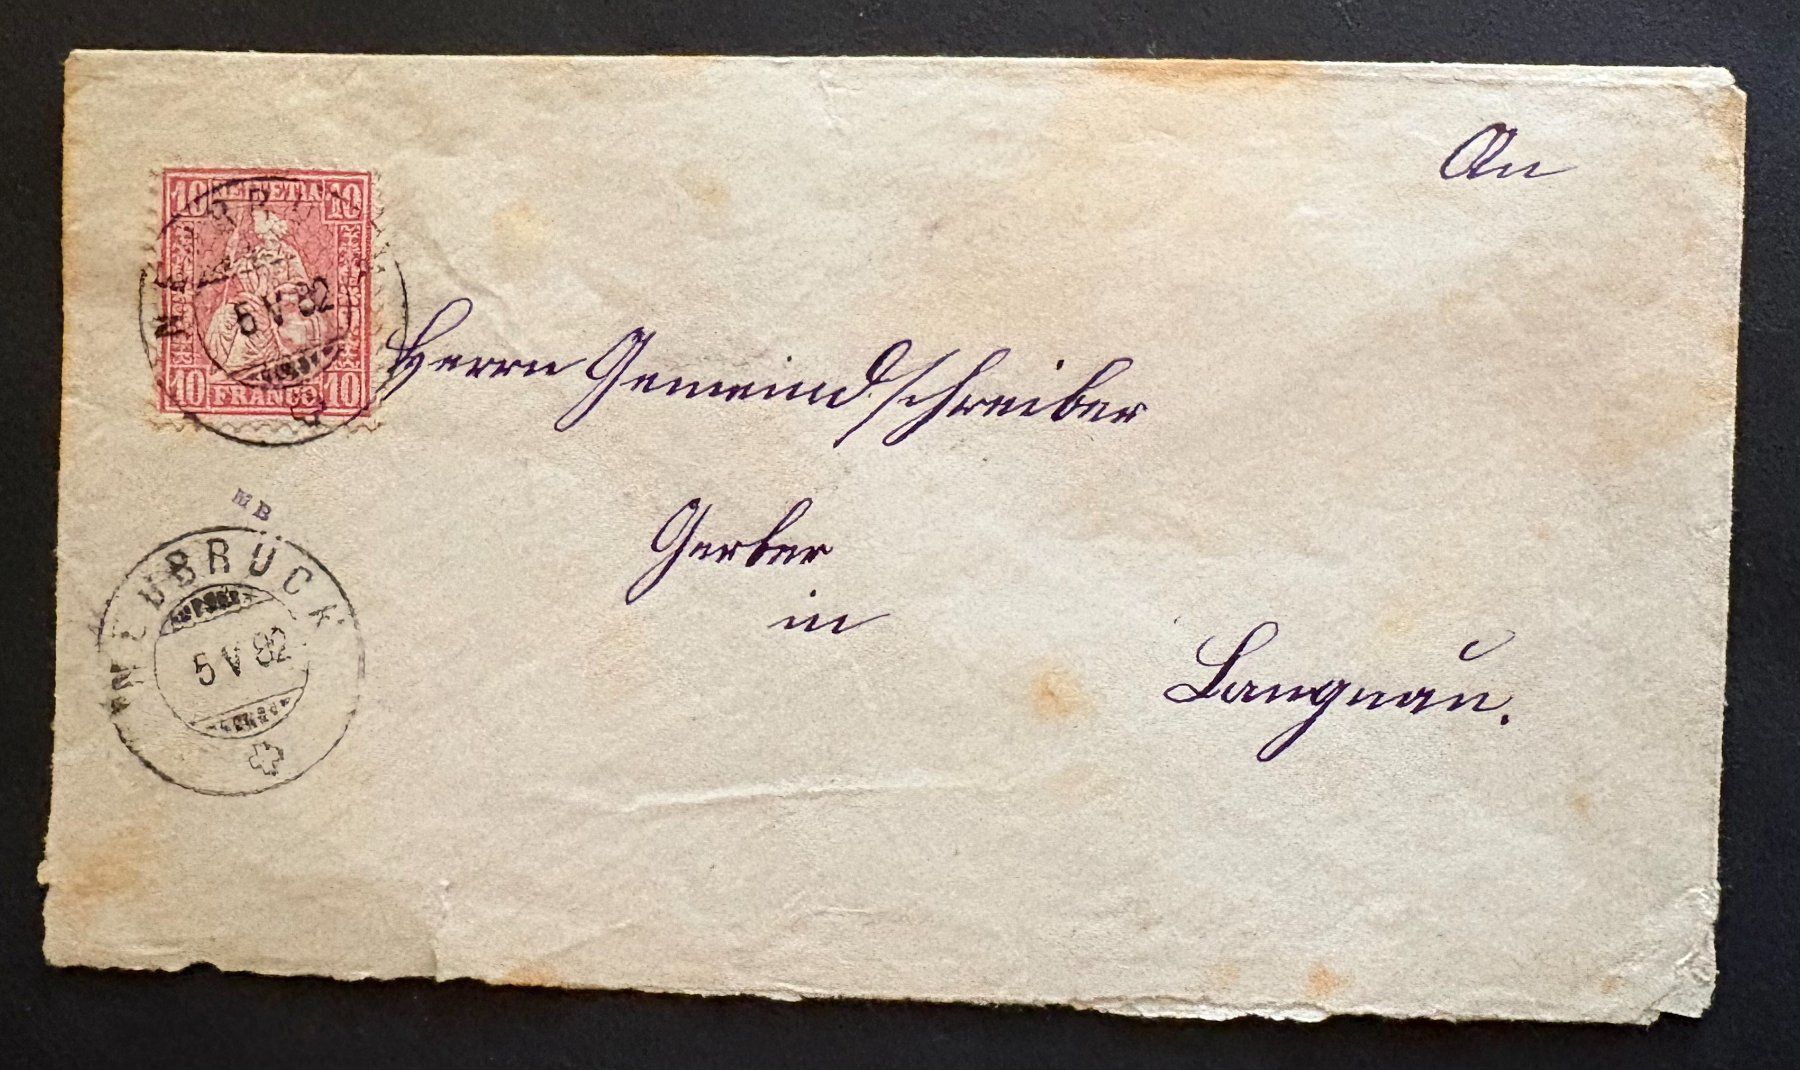 An
10 HELVETIA 10
5 V 82
10 FRANCO 10
Herrn Gemeindschreiber
MB
Gerber
NEUBRÜCK
in
5 V 82
Langnau.